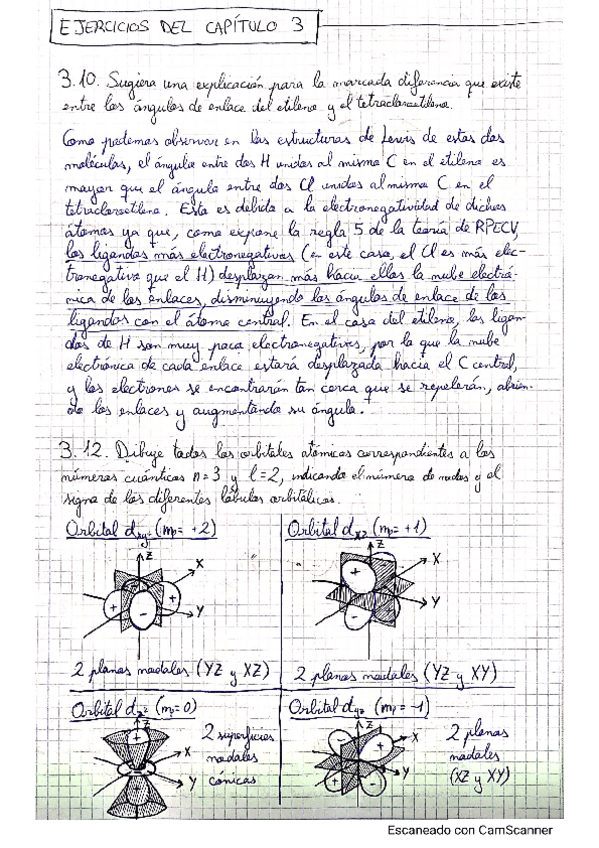 EJERCICIOS DEL CAPÍTULO 3
3.10. Sugiera una explicación para la marcada diferencia que existe
entre los ángulos de enlace del etileno y el tetracloroetileno.
Como podemos observar en las estructuras de Lewis de estas dos
moléculas, el ángulo entre dos H unidos al mismo C en el etileno es
mayor que el ángulo entre dos Cl unidos al mismo C en el
tetracloroetileno. Esto es debido a la electronegatividad de dichos
átomos ya que, como expone la regla 5 de la teoría de RPECV,
los ligandos más electronegativos (en este caso, el Cl es más elec-
tronegativo que el H) desplazan más hacia ellos la nube electró-
nica de los enlaces, disminuyendo los ángulos de enlace de los
ligandos con el átomo central. En el caso del etileno, los ligan-
dos de H son muy poco electronegativos, por lo que la nube
electrónica de cada enlace estará desplazada hacia el C central,
y los electrones se encontrarán tan cerca que se repelerán, abrien-
do los enlaces y aumentando su ángulo.
3.12. Dibuje todos los orbitales atómicos correspondientes a los
números cuánticos n=3 y l=2, indicando el número de nodos y el
signo de los diferentes lóbulos orbitálicos.
Orbital dxy (ml= +2)
Z
X
Y
+
+
-
2 planos nodales (YZ y XZ)
Orbital dxz (ml= +1)
Z
X
Y
+
-
2 planos nodales (YZ y XY)
Orbital dz² (ml= 0)
Z
X
Y
+
2 superficies
nodales
cónicas
Orbital dyz (ml= -1)
Z
X
Y
-
+
+
-
2 planos
nodales
(XZ y XY)
Escaneado con CamScanner